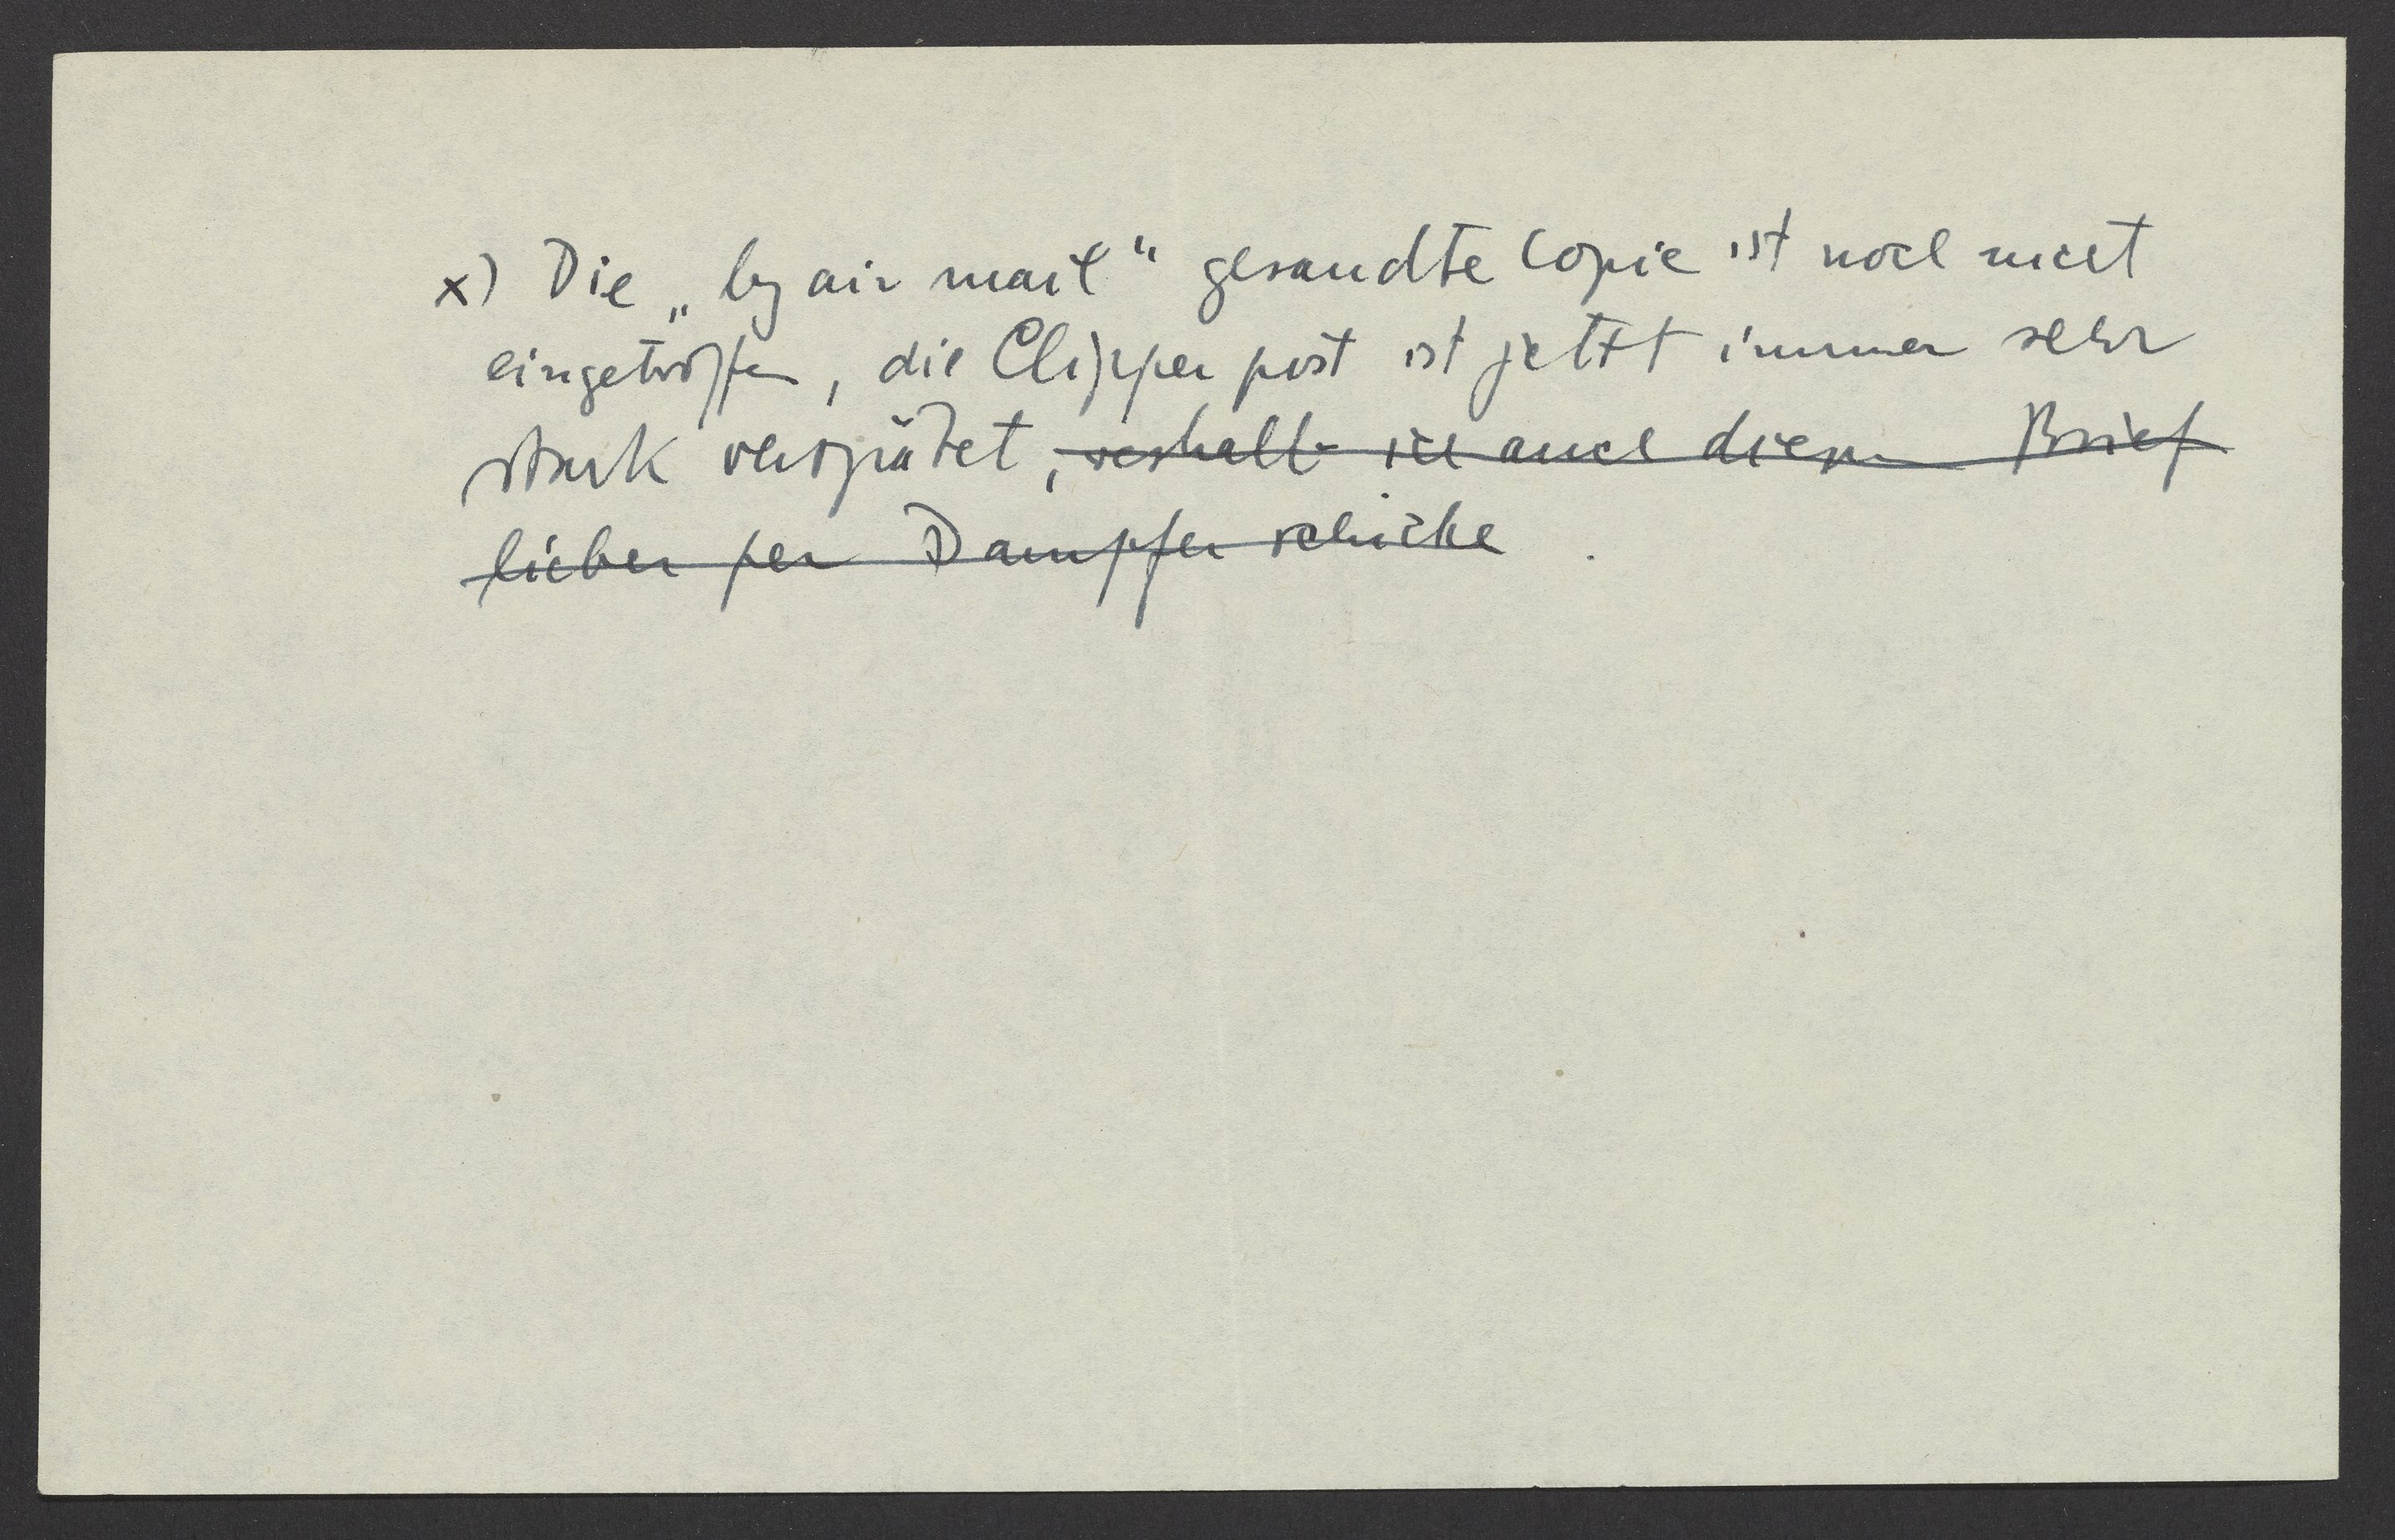 x) Die „by air mail“ gesandte Copie ist noch nicht
eingetroffen, die Clipper post ist jetzt immer sehr
stark verspätet, weshalb ich auch diesen Brief
lieber per Dampfer schicke.